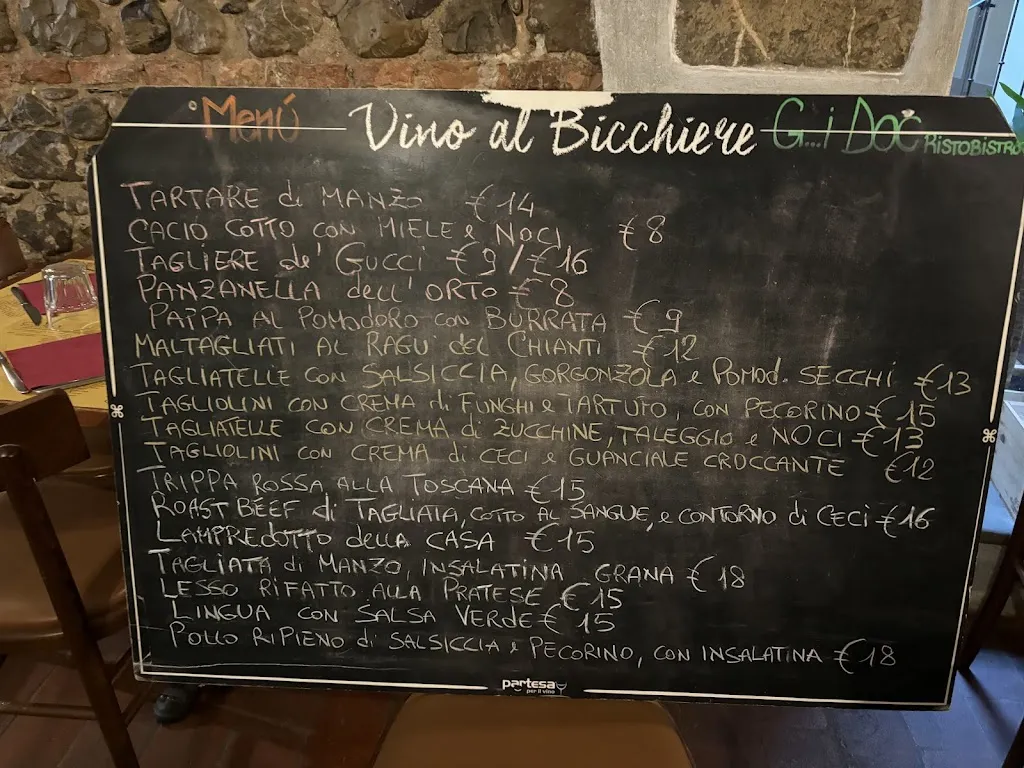 Menú Vino al Bicchiere G...i Doc RISTOBISTRO
TARTARE di MANZO € 14
CACIO COTTO CON MIELE e NOCI € 8
TAGLIERE de' GUCCI € 9 / € 16
PANZANELLA dell'ORTO € 8
PAPPA AL POMODORO con BURRATA € 9
MALTAGLIATI AL RAGU' DEL CHIANTI € 12
TAGLIATELLE CON SALSICCIA, GORGONZOLA e POMOD. SECCHI € 13
TAGLIOLINI CON CREMA di FUNGHI e TARTUFO, CON PECORINO € 15
TAGLIATELLE CON CREMA di ZUCCHINE, TALEGGIO e NOCI € 13
TAGLIOLINI CON CREMA di CECI e GUANCIALE CROCCANTE € 12
TRIPPA ROSSA ALLA TOSCANA € 15
ROAST BEEF di TAGLIATA, COTTO AL SANGUE, e CONTORNO di CECI € 16
LAMPREDOTTO della CASA € 15
TAGLIATA di MANZO, INSALATINA GRANA € 18
LESSO RIFATTO ALLA PRATESE € 15
LINGUA CON SALSA VERDE € 15
POLLO RIPIENO di SALSICCIA e PECORINO, CON INSALATINA € 18
partesa
per il vino